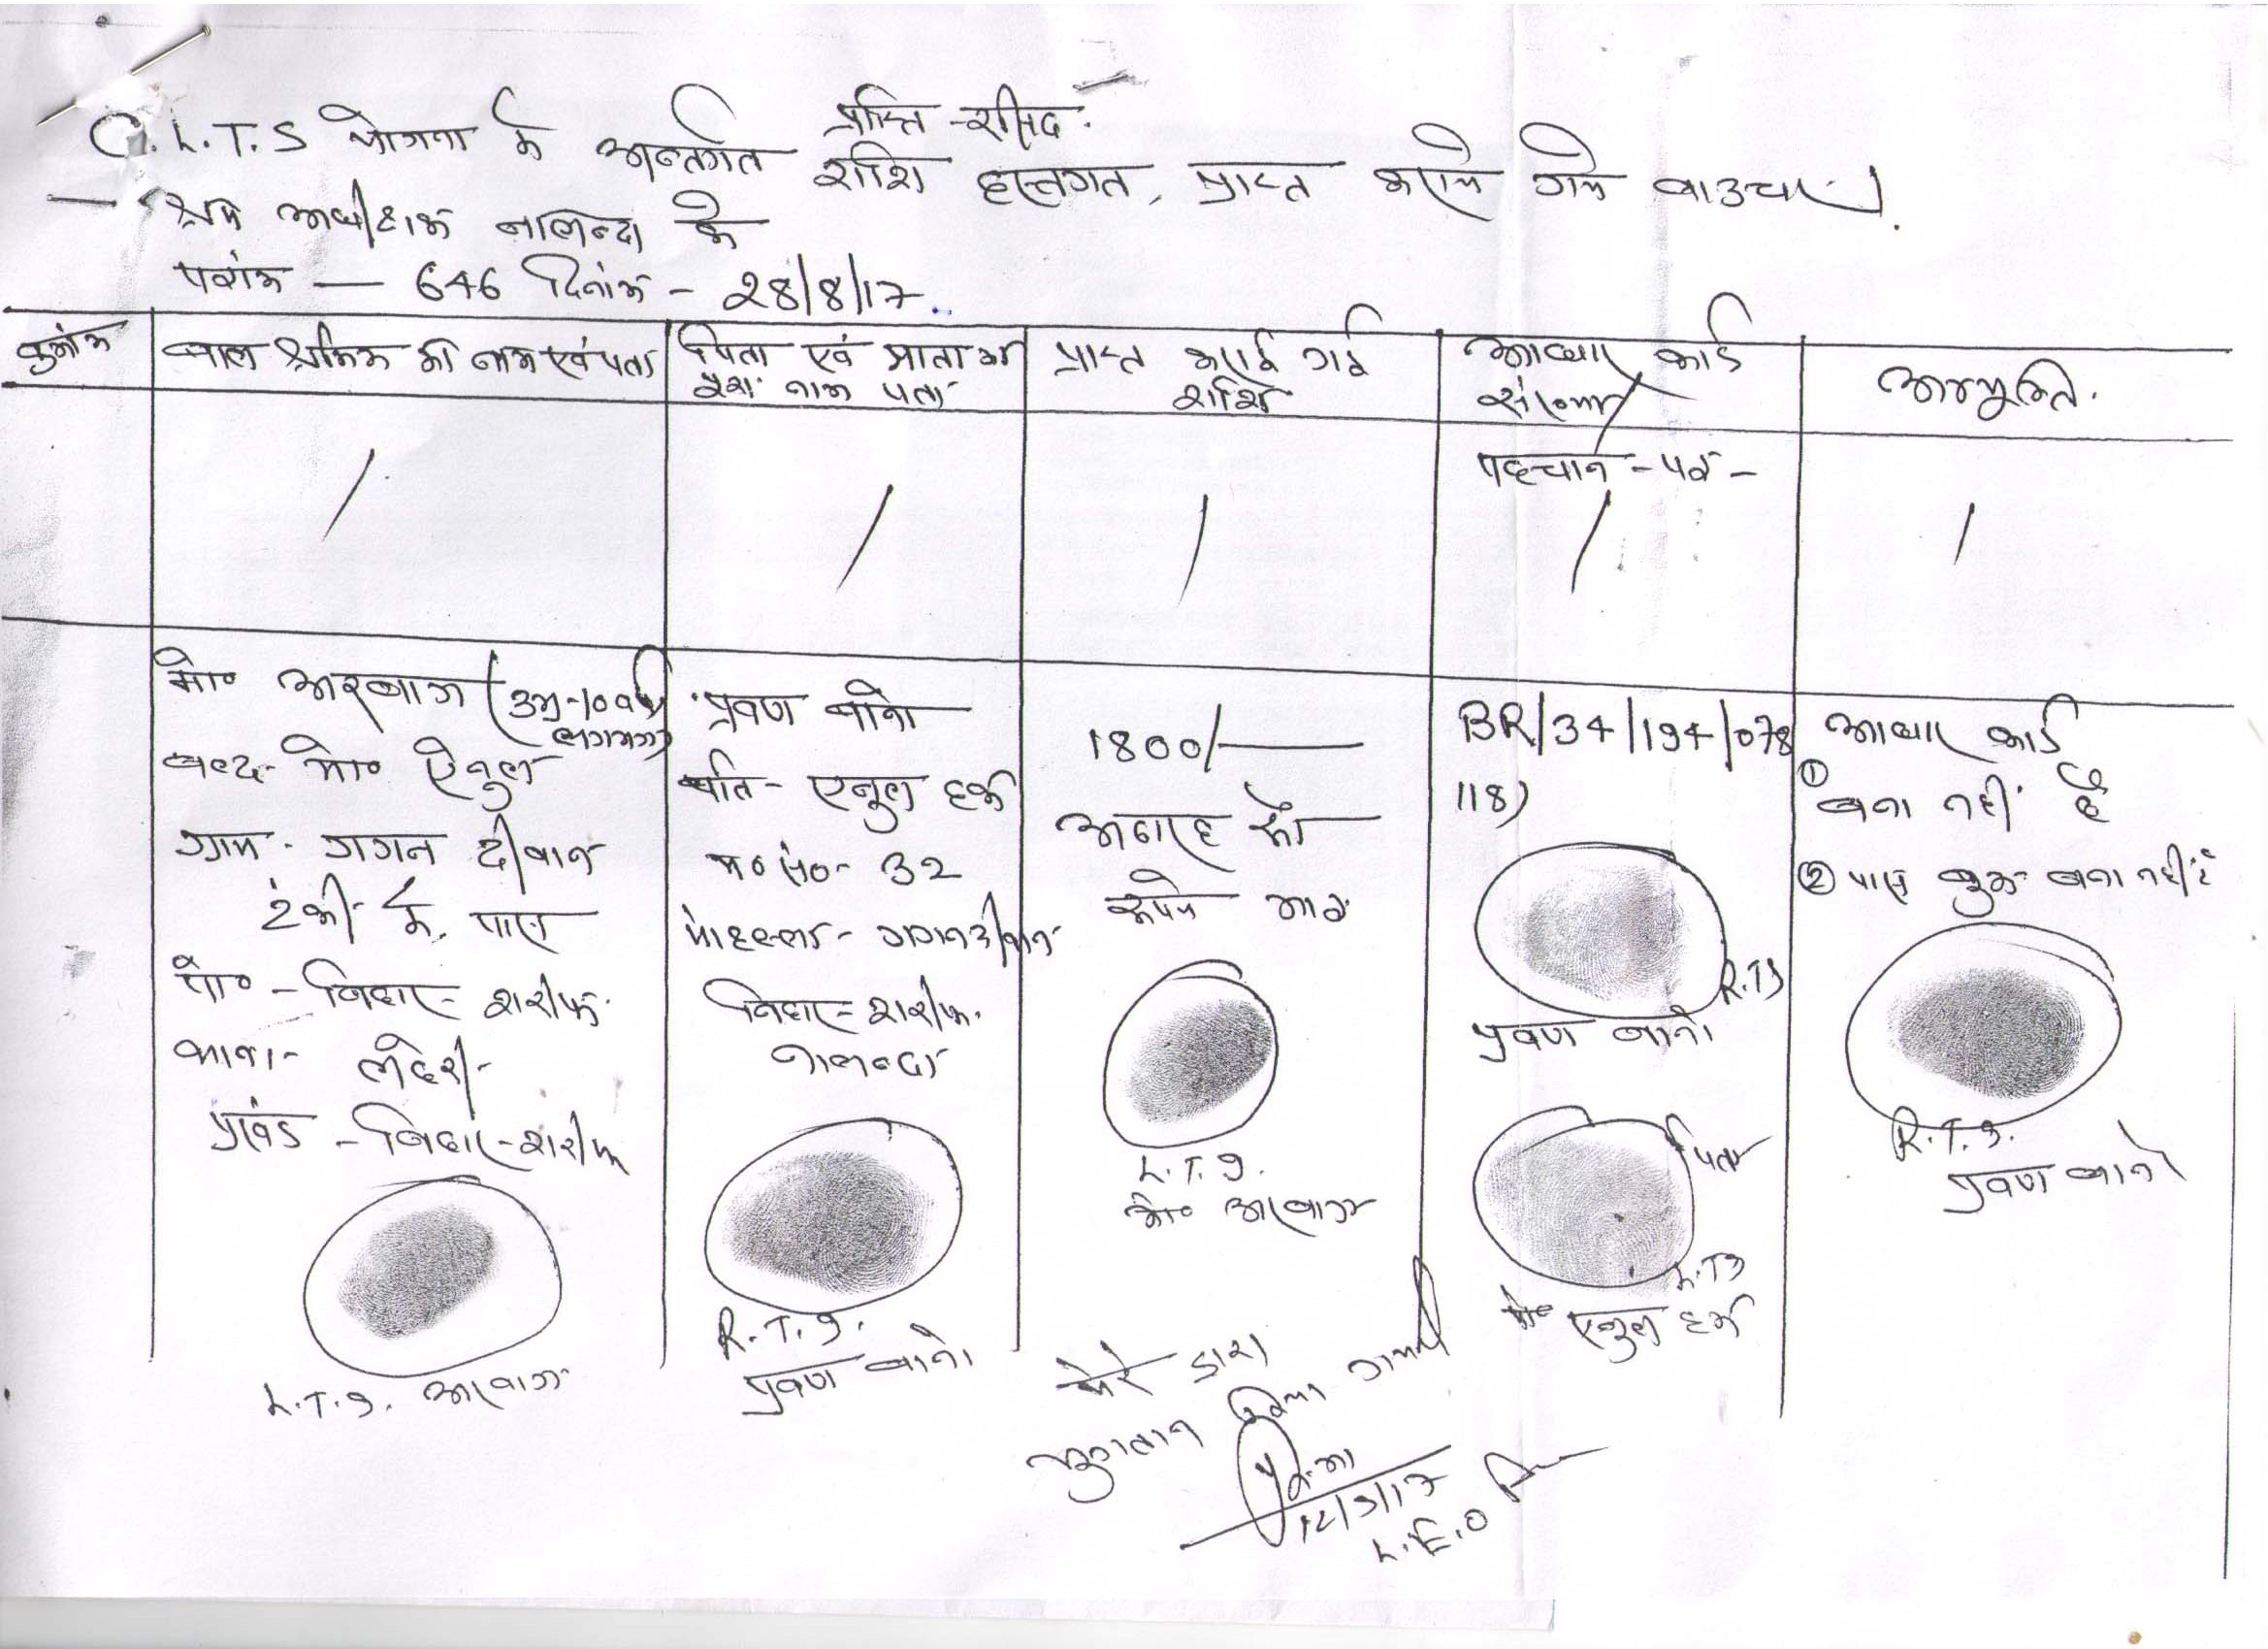 प्राप्ति-रसीद
C.L.T.S योजना के अन्तर्गत राशि हस्तगत, प्राप्त कराये गये वाउचर
श्रम अधीक्षक नालन्दा के
पत्रांक — 646 दिनांक - 28/8/17
क्रमांक
बाल श्रमिक की नाम एवं पता
पिता एवं माता का
नाम पता
प्राप्त कराई गई
राशि
आधार कार्ड
संख्या/
पहचान-पत्र-
अभ्युक्ति.
मो० अरबाज (उम्र-10 वर्ष
लगभग)
वल्द- मो० ऐनुल
ग्राम- गगन दीवान
टंकी के पास
पो०-बिहार-शरीफ
थाना- लहेरी
प्रखंड-बिहार-शरीफ
L.T.I. अरबाज
प्रवण बानो
पति- एनुल हक
म० सं०- 32
मोहल्ला- गगनदीवान
बिहार-शरीफ
नालन्दा
R.T.I.
प्रवण बानो
1800/—
अठारह सौ
रूपये मात्र
L.T.I.
मो० अरबाज
BR/34/194/078
118)
R.TI
प्रवण बानो
पिता
L.TI
मो० एनुल हक
आधार कार्ड
① बना नहीं है
② पास बुक बना नहीं है
R.T.I.
प्रवण बानो
मेरे द्वारा
भुगतान किया गया
12/9/17
L.E.O